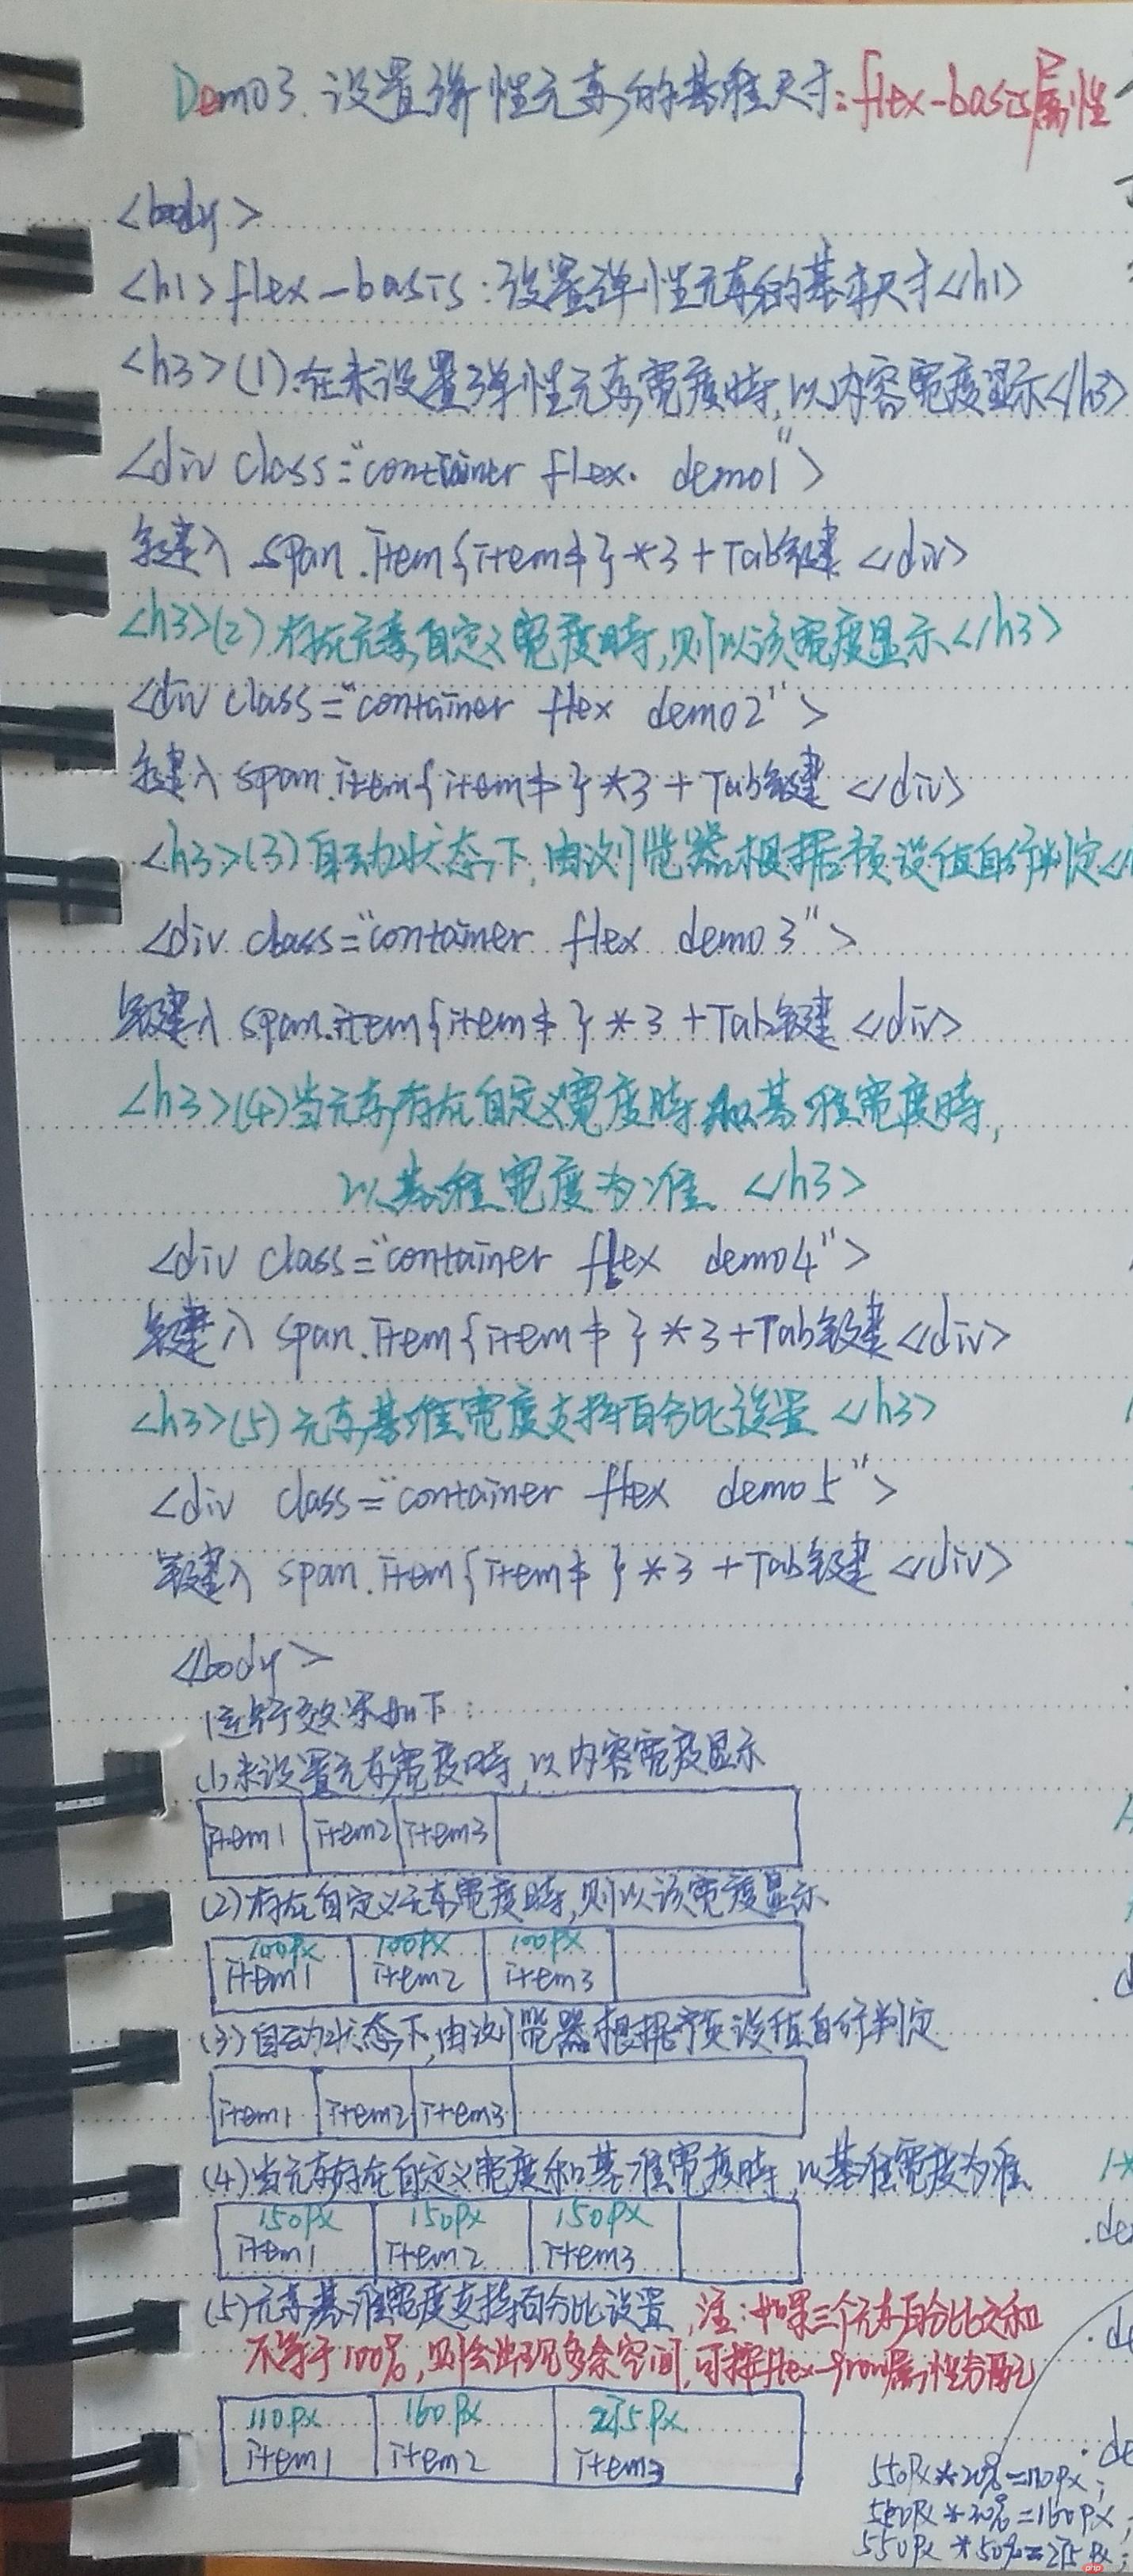 Demo3. 设置弹性元素的基准尺寸: flex-basis属性
<body>
<h1>flex-basis:设置弹性元素的基本尺寸</h1>
<h3>(1).在未设置弹性元素宽度时,以内容宽度显示</h3>
<div class="container flex. demo1">
键入 span.item{item$}*3+Tab键 </div>
<h3>(2).存在元素自定义宽度时,则以该宽度显示</h3>
<div class="container flex demo2">
键入 span.item{item$}*3+Tab键 </div>
<h3>(3)自动状态下,由浏览器根据预设值自行判定</
<div class="container flex demo3">
键入 span.item{item$}*3+Tab键 </div>
<h3>(4)当元素存在自定义宽度时和基准宽度时,
以基准宽度为准 </h3>
<div class="container flex demo4">
键入 span.item{item$}*3+Tab键 </div>
<h3>(5)元素基准宽度支持百分比设置 </h3>
<div class="container flex demo5">
键入 span.item{item$}*3+Tab键 </div>
</body>
运行效果如下:
(1)未设置元素宽度时,以内容宽度显示
item1 item2 item3
(2)存在自定义元素宽度时,则以该宽度显示
100px 100px 100px
item1 item2 item3
(3)自动状态下,由浏览器根据预设值自行判定
item1 item2 item3
(4)当元素存在自定义宽度和基准宽度时,以基准宽度为准
150px 150px 150px
item1 item2 item3
(5)元素基准宽度支持百分比设置,注:如果三个元素百分比之和
不等于100%,则会出现多余空间,可按flex-grow属性分配
110px 160px 275px
item1 item2 item3
550px*20%=110px;
550px*30%=160px;
550px*50%=275px;